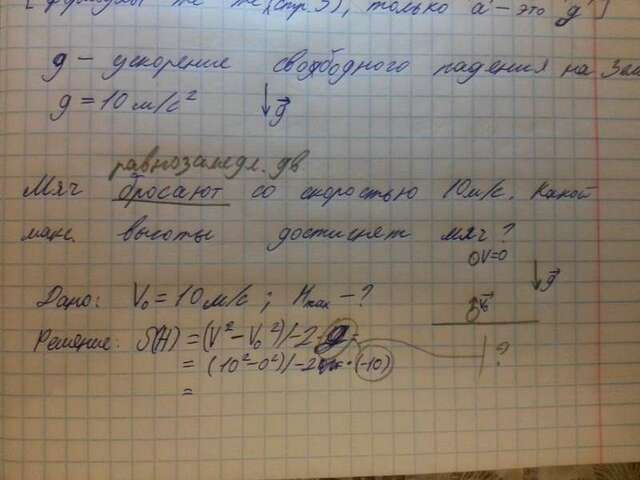 [формулы те же (стр.3), только a - это g]
g – ускорение свободного падения на Зем
g = 10 м/с² ↓g⃗
равнозамедл. дв
Мяч бросают со скоростью 10 м/с. Какой
макс. высоты достигнет мяч?
V=0
↓g⃗
Дано: V₀ = 10 м/с ; Hmax – ?
Решение: S(H) = (V² – V₀²)/-2 g
?
= (10² – 0²)/-2 · (-10)
=